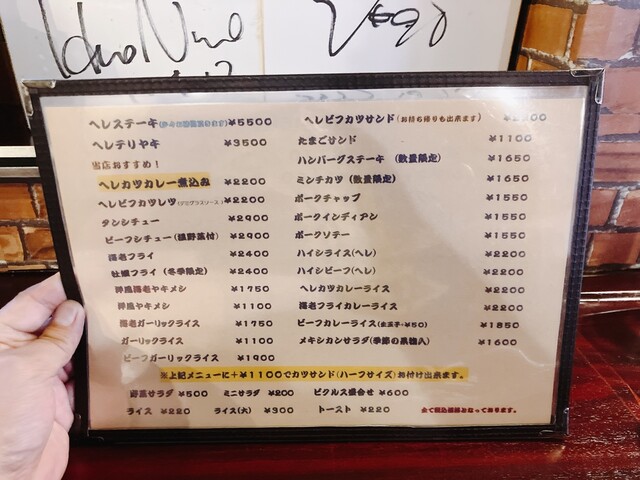 ヘレステーキ ¥5500
ヘレテリヤキ ¥3500
当店おすすめ！
ヘレカツカレー煮込み ¥2200
ヘレビフカツレツ(デミグラスソース) ¥2200
タンシチュー ¥2900
ビーフシチュー(温野菜付) ¥2900
海老フライ ¥2400
牡蠣フライ (冬季限定) ¥2400
洋風海老ヤキメシ ¥1750
洋風ヤキメシ ¥1100
海老ガーリックライス ¥1750
ガーリックライス ¥1100
ビーフガーリックライス ¥1900
ヘレビフカツサンド (お持ち帰りも出来ます)
たまごサンド ¥1100
ハンバーグステーキ (数量限定) ¥1650
ミンチカツ (数量限定) ¥1650
ポークチャップ ¥1550
ポークインディアン ¥1550
ポークソテー ¥1550
ハイシライス(ヘレ) ¥2200
ハイシビーフ(ヘレ) ¥2200
ヘレカツカレーライス ¥2200
海老フライカレーライス ¥2200
ビーフカレーライス(生玉子+¥50) ¥1850
メキシカンサラダ(季節の果物入) ¥1600
※上記メニューに+¥1100でカツサンド(ハーフサイズ)お付け出来ます。
野菜サラダ ¥500 ミニサラダ ¥200 ピクルス盛合せ ¥600
ライス ¥220 ライス(大) ¥300 トースト ¥220 全て税込価格となっております。